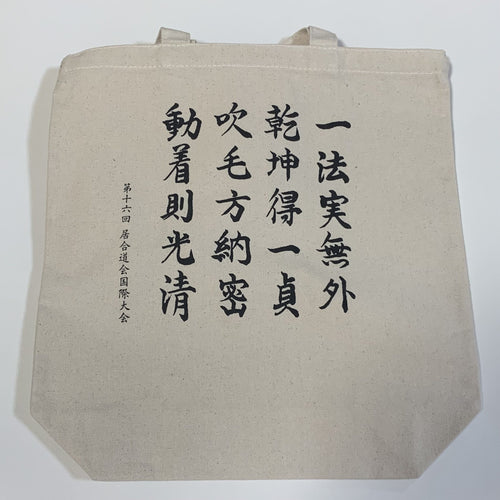 一法実無外
乾坤得一貞
吹毛方納密
動着則光清
第十六回 居合道会国際大会